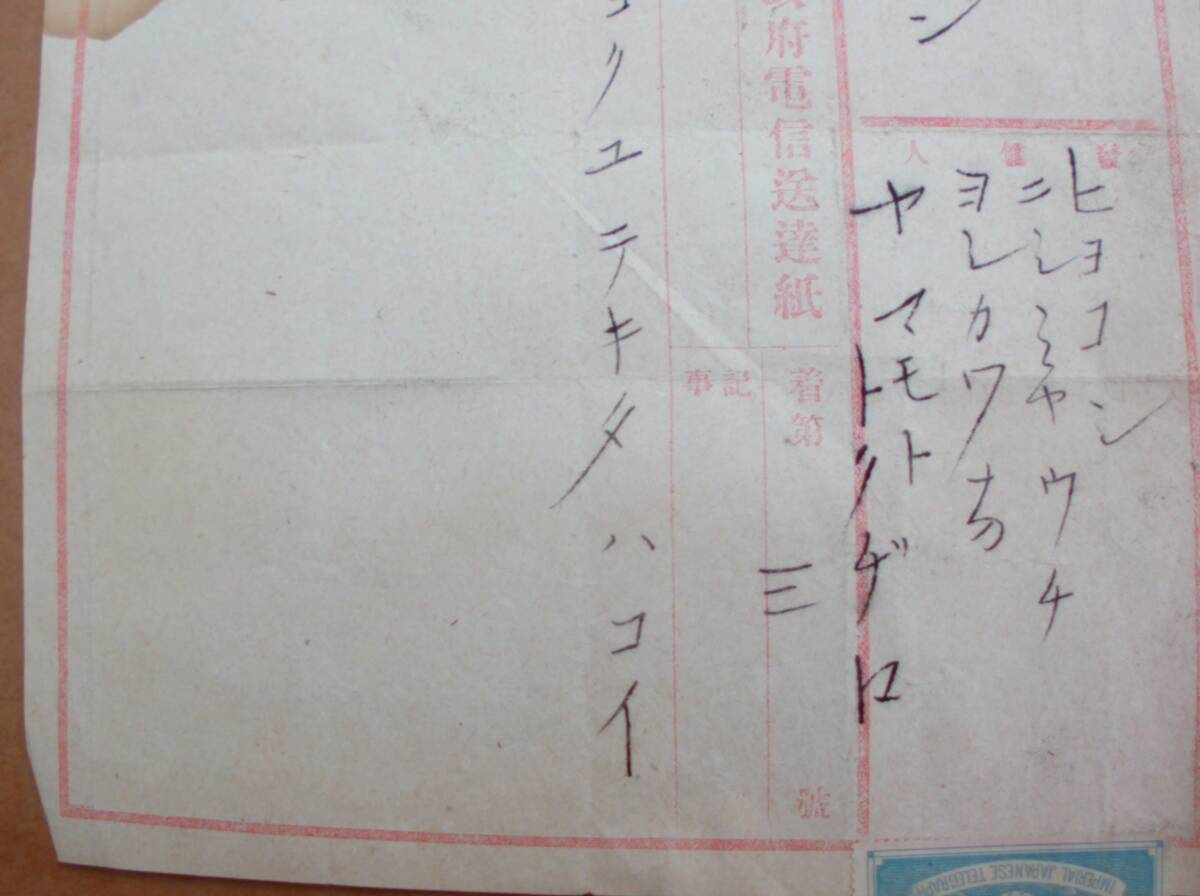 ン
發信人
ヒヨコン
ニシミヤウチ
ヨシカワ方
ヤマモト
トクヂロ
府電信送達紙
着第 三 號
記事
クユテキタハコイ
IMPERIAL JAPANESE TELEGRAPH